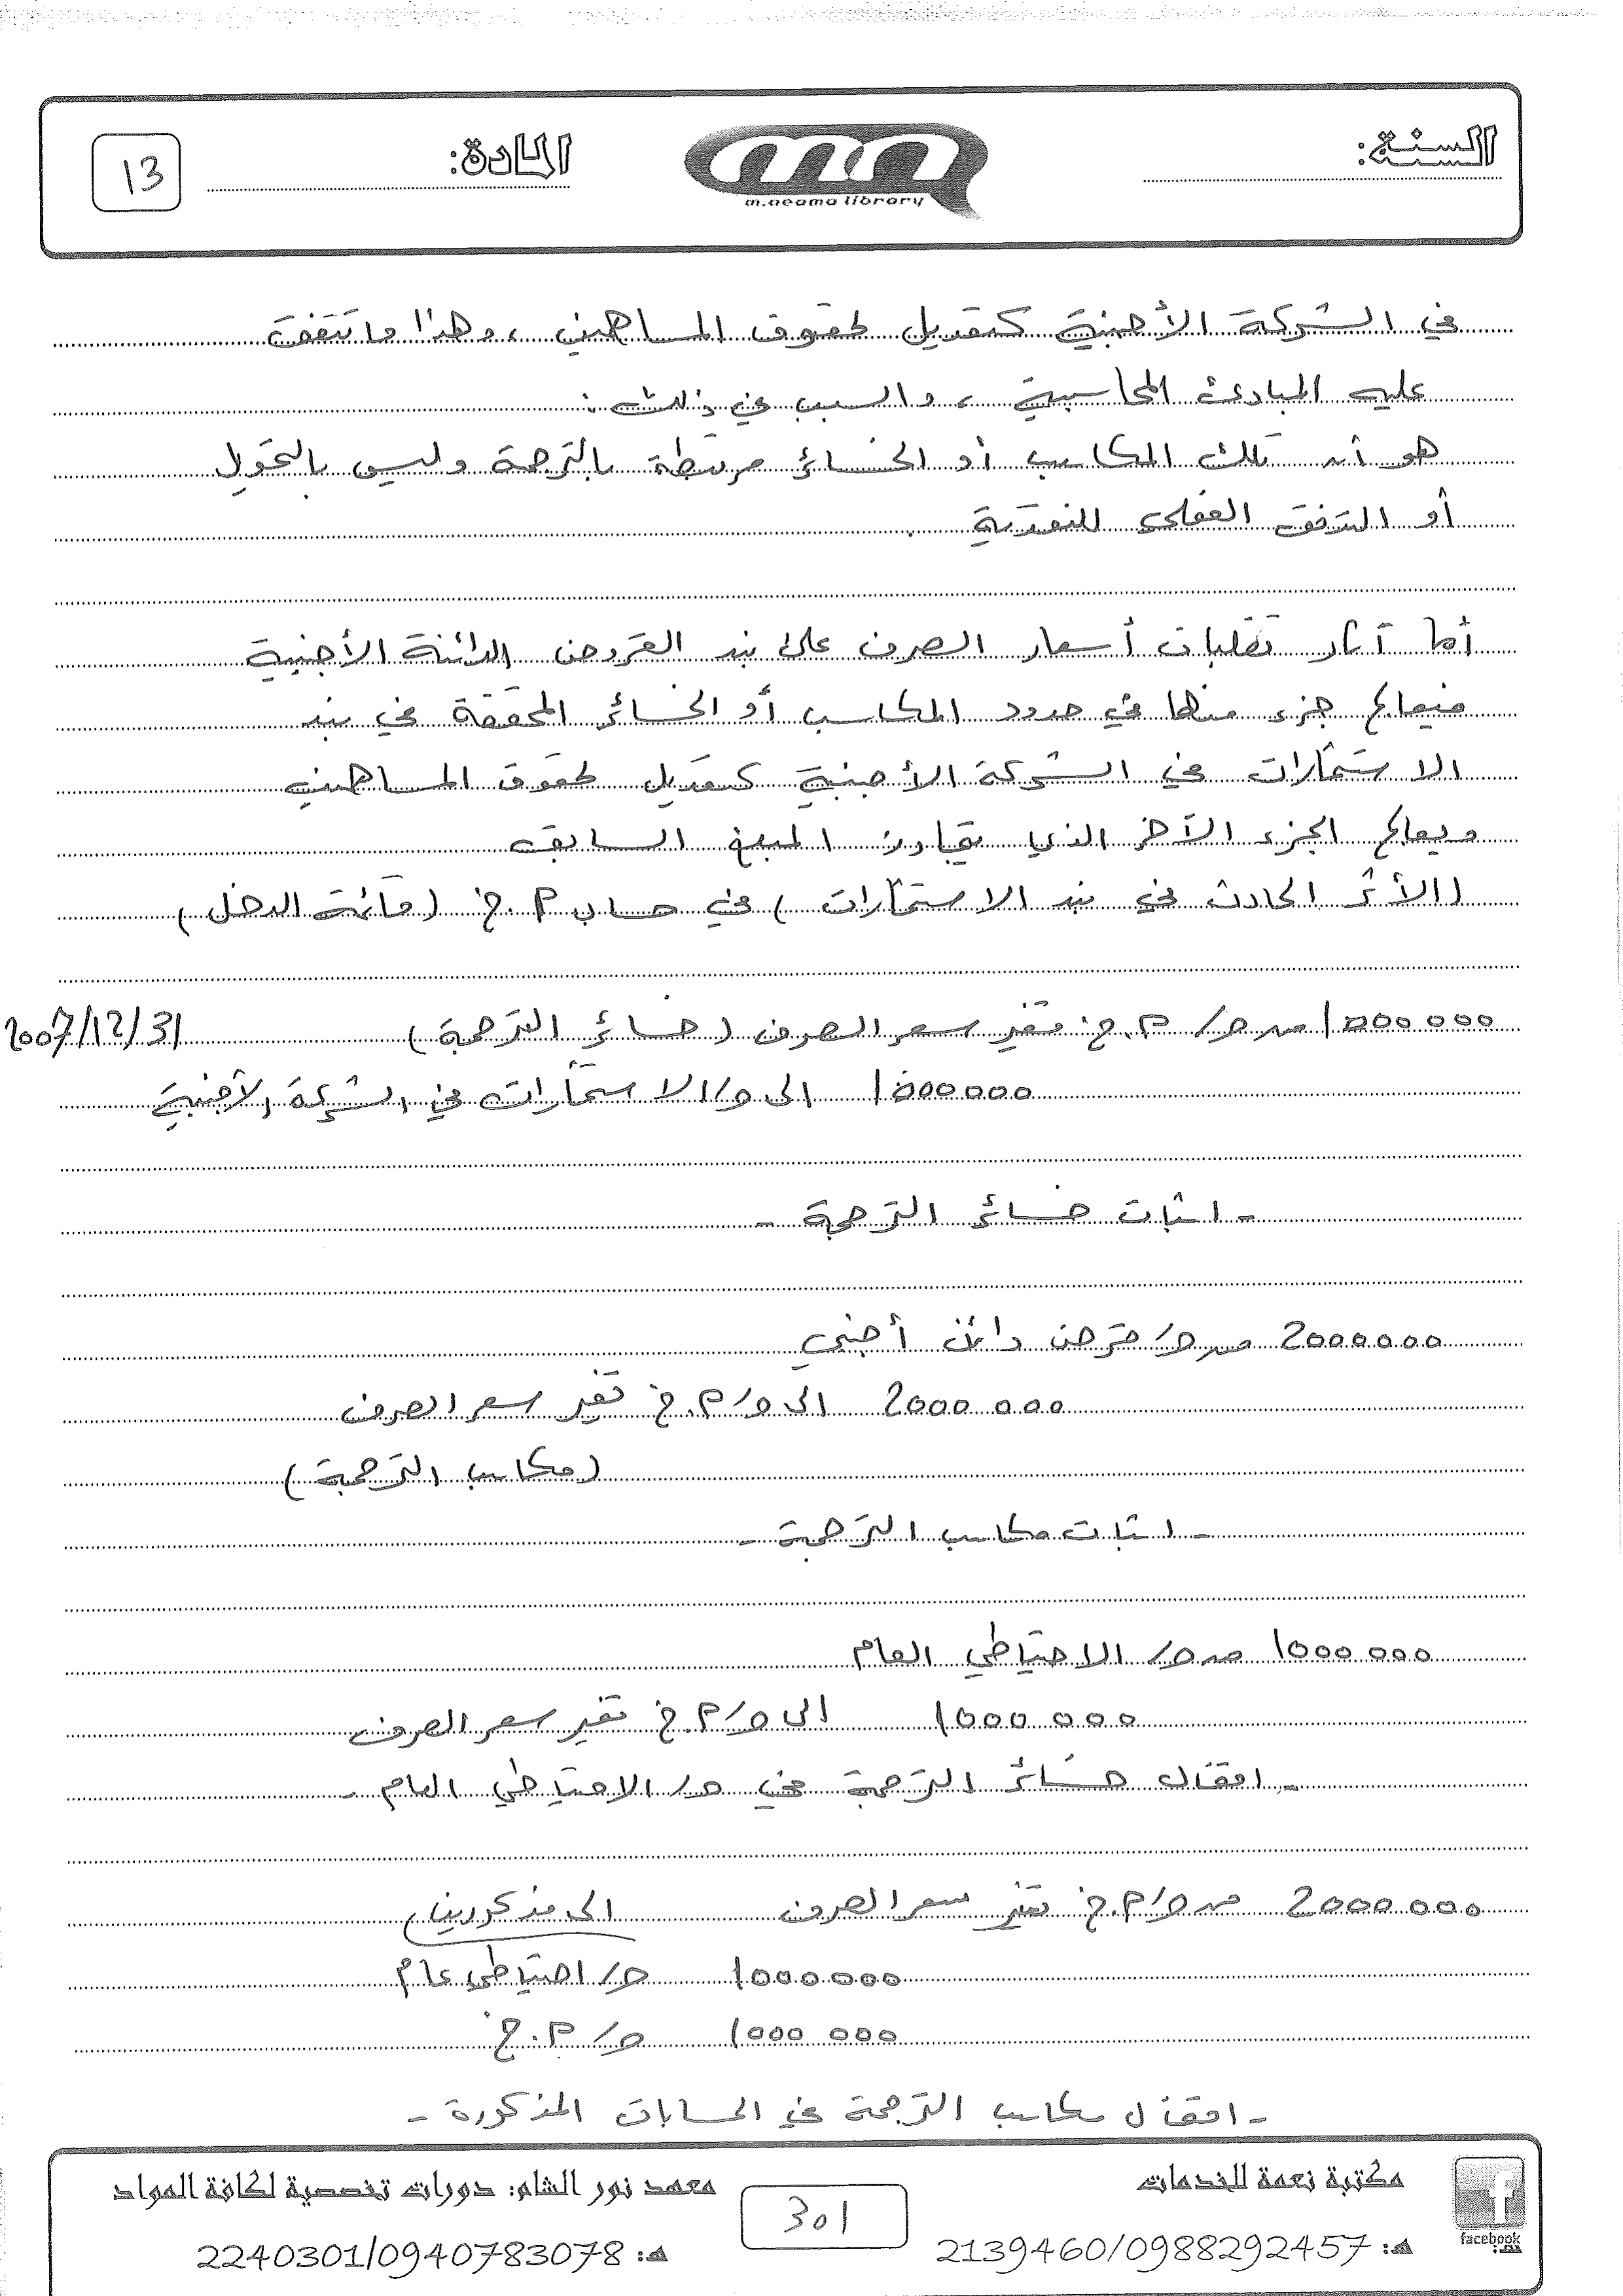 السنة:
m.neama library
المادة:
13
في الشركة الأجنبية كتعديل لحقوق المساهمين ، وهذا ما تتفق
عليه المبادئ المحاسبية ، والسبب في ذلك :
هو أن تلك المكاسب أو الخسائر مرتبطة بالترجمة وليس بالتحويل
أو التدفق الفعلي للنقدية .
أما آثار تقلبات أسعار الصرف على بند القروض الدائنة الأجنبية
فيعالج جزء منها في حدود المكاسب أو الخسائر المحققة في بند
الاستثمارات في الشركة الأجنبية كتعديل لحقوق المساهمين
ويعالج الجزء الآخر الذي يتجاوز المبلغ السابق
(الأثر الحادث في بند الاستثمارات) في حساب أ.خ (قائمة الدخل)
1000 000 من ح/ أ.خ تغير سعر الصرف (خسائر الترجمة) 2007/12/31
1000000 الى ح/ الاستثمارات في الشركة الأجنبية
- اثبات خسائر الترجمة -
2000000 من ح/ قرض دائن أجنبي
2000 000 الى ح/ أ.خ تغير سعر الصرف
(مكاسب الترجمة)
- اثبات مكاسب الترجمة -
1000 000 من ح/ الاحتياطي العام
1000 000 الى ح/ أ.خ تغير سعر الصرف
- اقفال خسائر الترجمة في ح/ الاحتياطي العام -
2000 000 من ح/ أ.خ تغير سعر الصرف الى مذكورين
1000000 ح/ احتياطي عام
1000 000 ح/ أ.خ
- اقفال مكاسب الترجمة في الحسابات المذكورة -
مكتبة نعمة للخدمات
هـ: 2139460/0988292457
facebook
301
معهد نور الشام: دورات تخصصية لكافة المواد
هـ: 2240301/0940783078